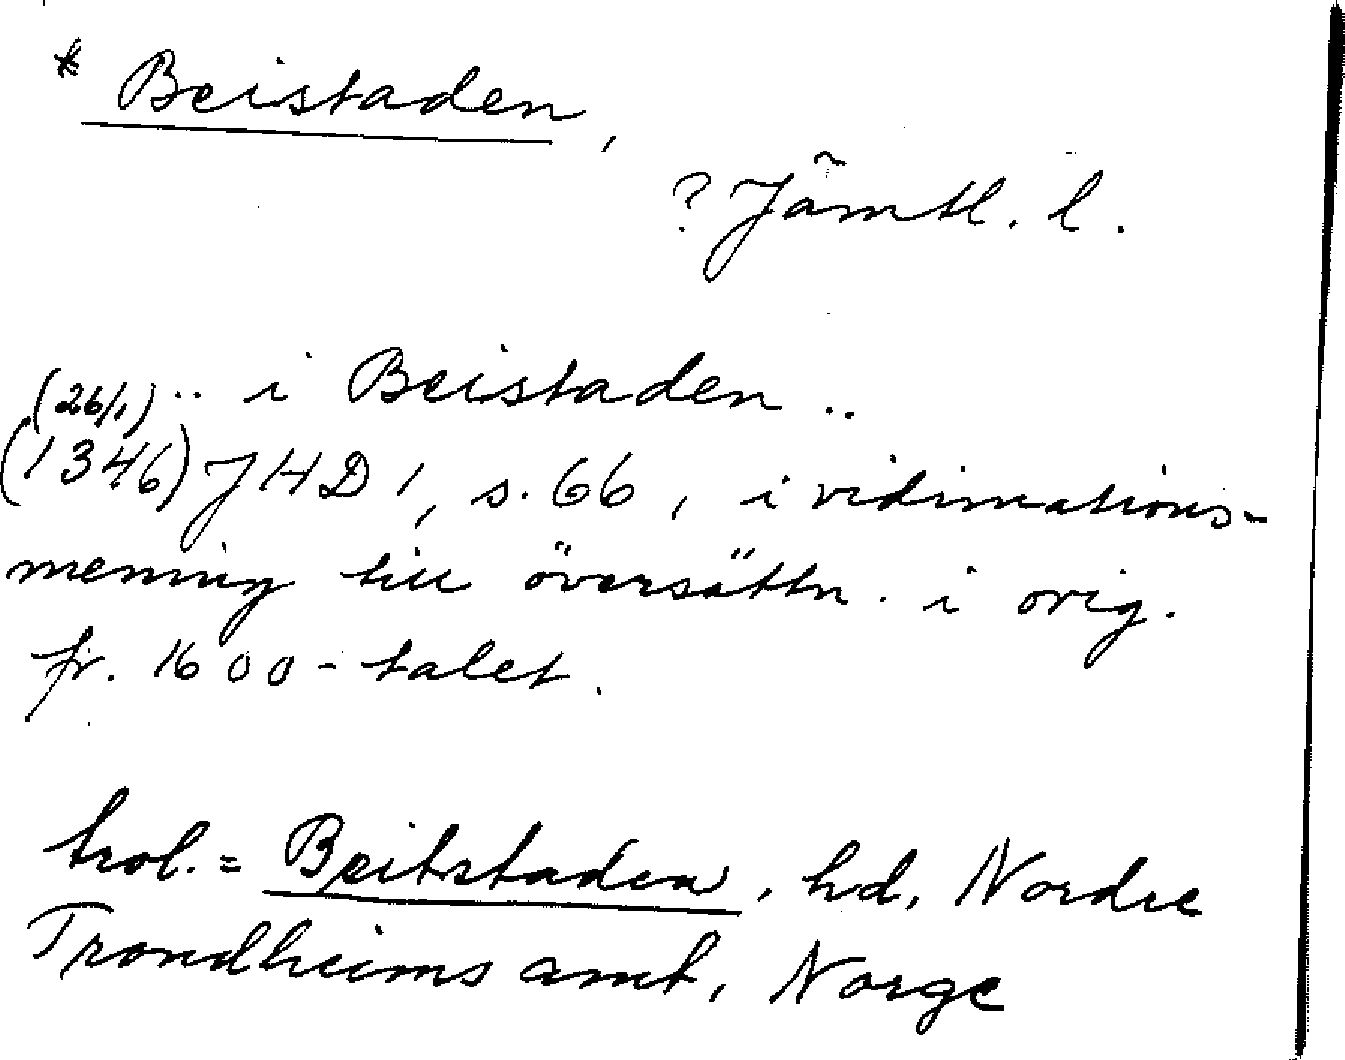 * Beistaden,
? Jämtl. l.
(26/1) .. i Beistaden ..
(1346) JHD 1, s. 66, i vidimations-
mening till översättn. i orig.
fr. 1600-talet.
trol. = Beitstaden, hd, Nordre
Trondheims amt, Norge